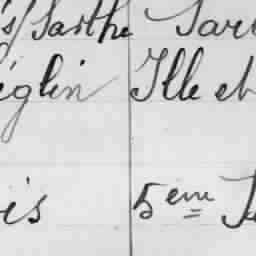 s/Sarthe Sar
églin Ille et
is 5eme